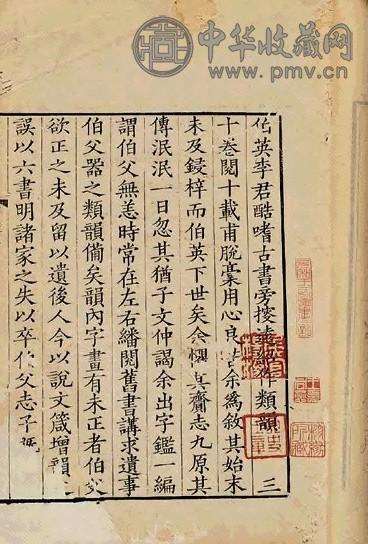 中华收藏网
www.pmv.cn
伯英李君酷嗜古書旁搜遠紹作類韻三
十卷閱十載甫脫稾用心良苦余爲敘其始末
未及鋟梓而伯英下世矣余懼其齎志九原其
傳泯泯一日忽其猶子文仲謁余出字鑑一編
謂伯父無恙時常在左右繙閱舊書講求遺事
伯父器之類韻僃矣韻內字畫有未正者伯父
欲正之未及留以遺後人今以說文箴增韻
誤以六書明諸家之失以卒伯父志子